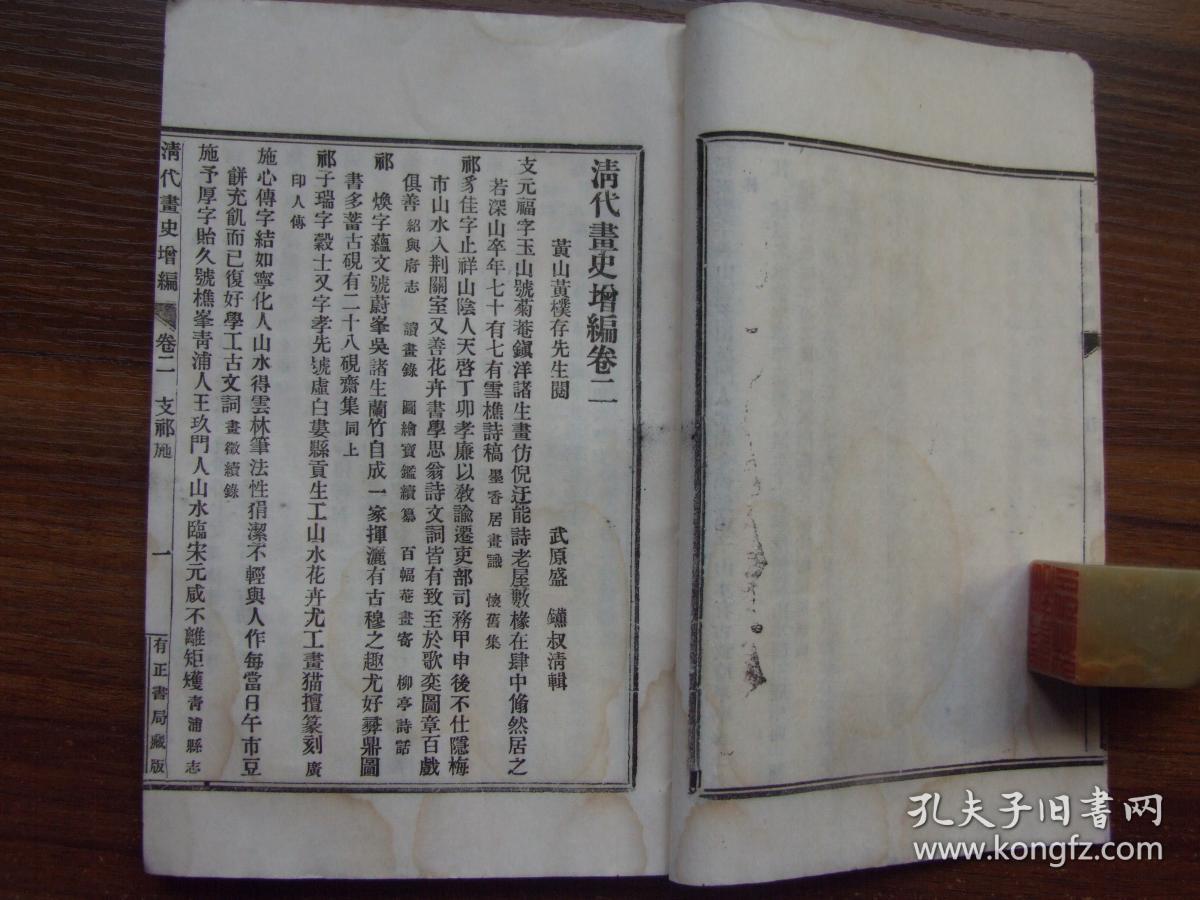 清代畫史增編卷二
黃山黃樸存先生閱
武原盛 鑂叔清輯
支元福字玉山號菊菴鎮洋諸生畫仿倪迂能詩老屋數椽在肆中翛然居之
若深山卒年七十有七有雪樵詩稿 墨香居畫識 懷舊集
祁豸佳字止祥山陰人天啓丁卯孝廉以敎諭遷吏部司務甲申後不仕隱梅
市山水入荆關室又善花卉書學思翁詩文詞皆有致至於歌奕圖章百戲
俱善 紹興府志 讀畫錄 圖繪寶鑑續纂 百幅菴畫寄 柳亭詩話
祁 煥字蘊文號蔚峯吳諸生蘭竹自成一家揮灑有古穆之趣尤好彝鼎圖
書多蓄古硯有二十八硯齋集 同上
祁子瑞字穀士又字孝先號虛白婁縣貢生工山水花卉尤工畫猫擅篆刻 廣
印人傳
施心傳字結如寧化人山水得雲林筆法性狷潔不輕與人作每當日午市豆
餅充飢而已復好學工古文詞 畫徵續錄
施予厚字貽久號樵峯靑浦人王玖門人山水臨宋元咸不離矩矱 青浦縣志
清代畫史增編 卷二 支祁施 一 有正書局藏版
孔夫子旧书网
www.kongfz.com